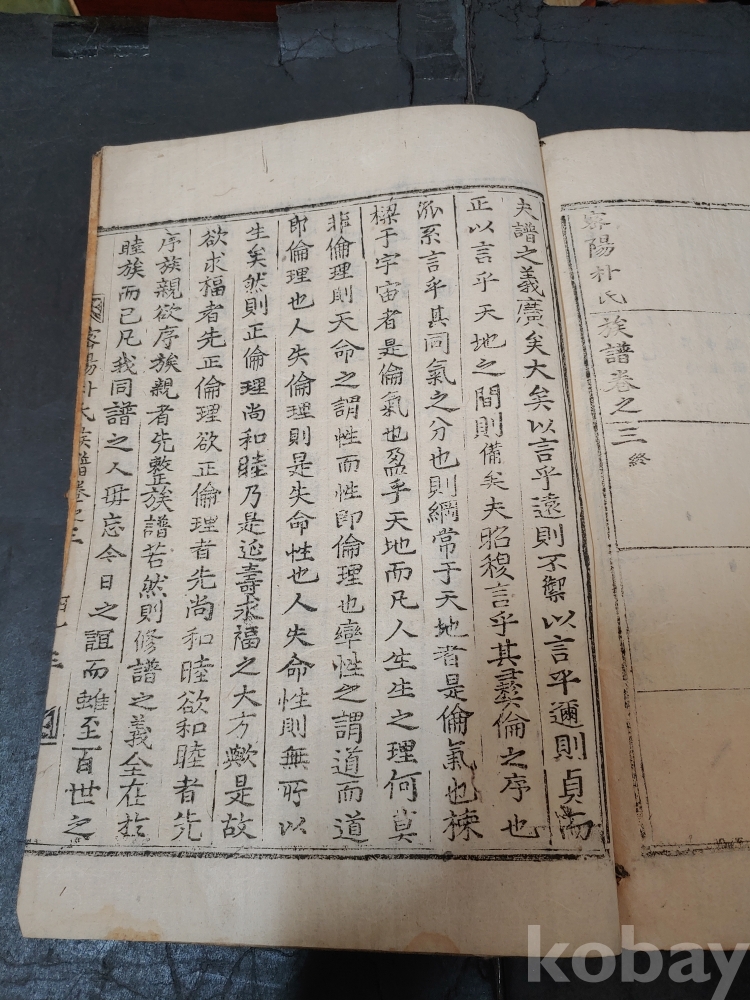 密陽朴氏族譜卷之三 終
夫譜之義廣矣大矣以言乎遠則不禦以言乎邇則貞而
正以言乎天地之間則備矣夫昭穆言乎其彛倫之序也
派系言乎其同氣之分也則綱常于天地者是倫氣也棟
樑于宇宙者是倫氣也盈乎天地而凡人生生之理何莫
非倫理則天命之謂性而性卽倫理也率性之謂道而道
卽倫理也人失倫理則是失命性也人失命性則無所以
生矣然則正倫理尚和睦乃是延壽求福之大方歟是故
欲求福者先正倫理欲正倫理者先尚和睦欲和睦者先
序族親欲序族親者先整族譜若然則修譜之義全在於
睦族而已凡我同譜之人毋忘今日之誼而雖至百世之
密陽朴氏族譜卷之三
kobay